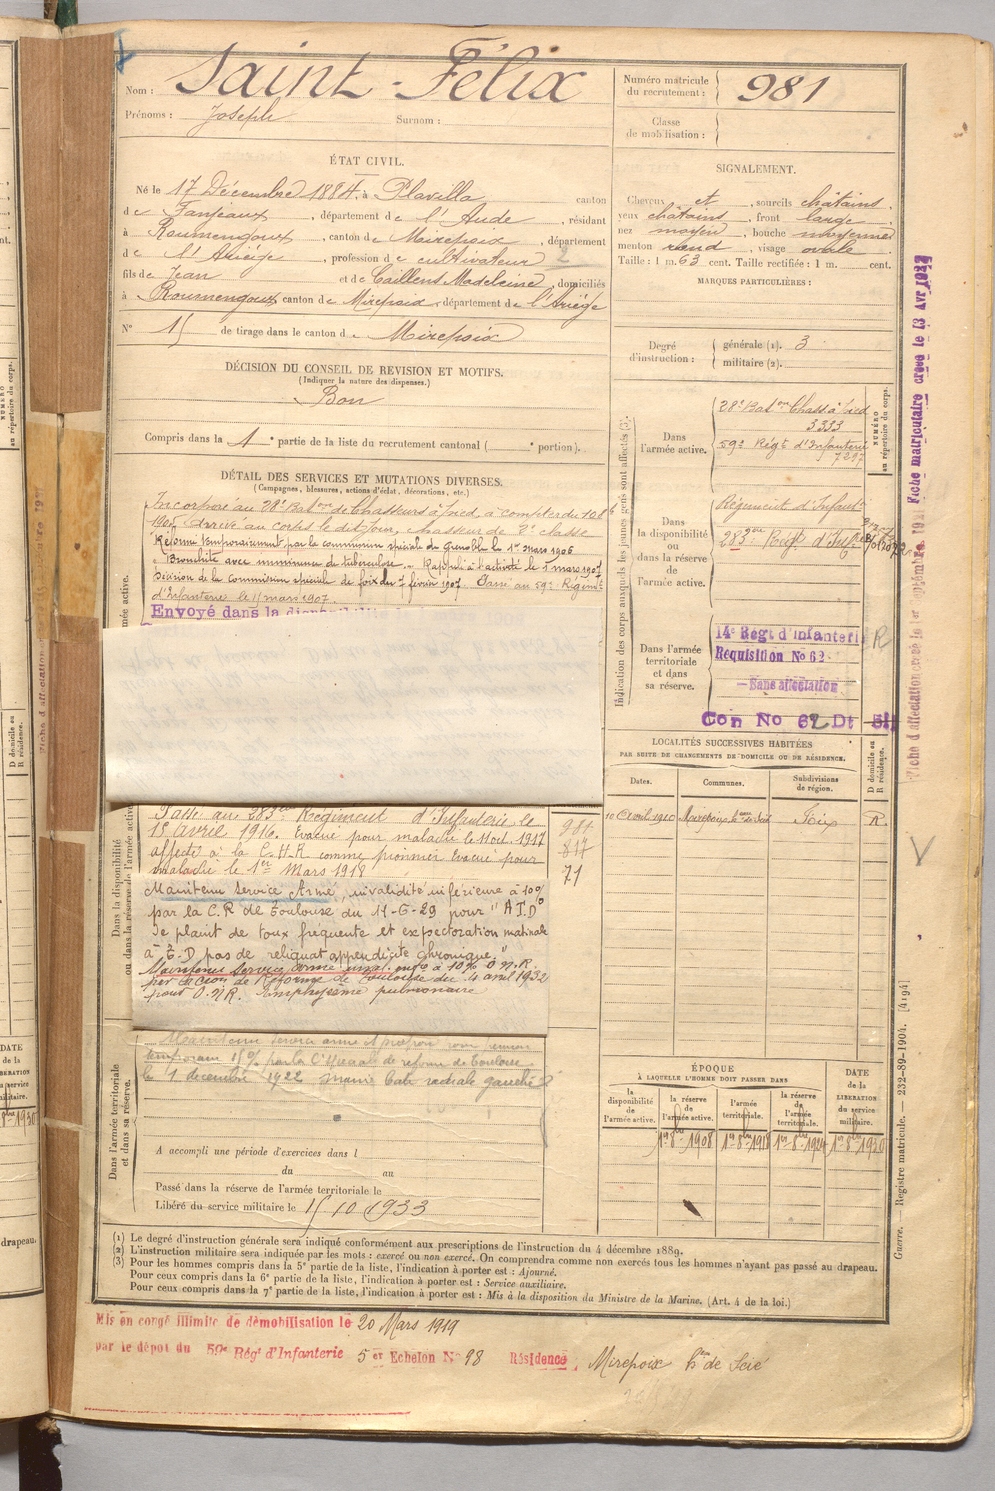 Nom : Saint-Félix
Prénoms : Joseph Surnom :
Numéro matricule du recrutement : 981
Classe de mobilisation :
ÉTAT CIVIL.
Né le 17 Décembre 1884, à Plavilla canton
de Fanjeaux, département de l'Aude, résidant
à Roumengoux, canton de Mirepoix, département
de l'Ariège, profession de cultivateur 2
fils de Jean et de Caillens Madeleine, domiciliés
à Roumengoux canton de Mirepoix, département de l'Ariège
N° 15 de tirage dans le canton de Mirepoix
SIGNALEMENT.
Cheveux et, sourcils châtains,
yeux châtains, front large
nez moyen, bouche moyenne
menton rond, visage ovale
Taille : 1 m. 63 cent. Taille rectifiée : 1 m. cent.
MARQUES PARTICULIÈRES :
Degré d'instruction : générale (1). 3
militaire (2).
DÉCISION DU CONSEIL DE REVISION ET MOTIFS.
(Indiquer la nature des dispenses.)
Bon
Compris dans la 1e partie de la liste du recrutement cantonal ( e portion).
DÉTAIL DES SERVICES ET MUTATIONS DIVERSES.
(Campagnes, blessures, actions d'éclat, décorations, etc.)
Incorporé au 28e Baton de Chasseurs à pied, à compter du 10
Arrivé au corps le dit jour, chasseur de 2e classe
Réformé temporairement par la commission spéciale de Grenoble le 1er mars 1906
"Bronchite avec imminence de tuberculose". Rappelé à l'activité le 5 mars 1907
Décision de la commission spéciale de Foix du 7 février 1907. Passé au 59e Régiment
d'Infanterie le 11 mars 1907.
Envoyé dans la disponibilité
Passé au 283eme Régiment d'Infanterie le
1er avril 1916. Evacué pour maladie le 11 oct. 1917
affecté à la C.H.R comme pionnier Evacué pour
maladie le 1er Mars 1918
981
817
71
Maintenu Service Armé, invalidité inférieure à 10%
par la C.R de Toulouse du 11-6-29 pour "A I D°
Se plaint de toux fréquente et expectoration matinale
à E.D pas de reliquat appendicite chronique"
Maintenu Service armé inval. infre à 10% O.N.R.
par la Cion de Réforme de Toulouse du 4 avril 1932
pour O.N.R. Emphysème pulmonaire
Maintenu service armé et pension
temporaire 15% par la de réforme de Toulouse
le 1 décembre 1922 radiale gauche
A accompli une période d'exercices dans l
du au
Passé dans la réserve de l'armée territoriale le
Libéré du service militaire le 15 10 1933
Dans la disponibilité ou dans la réserve de l'armée active.
Dans l'armée territoriale et dans sa réserve.
Indication des corps auxquels les jeunes gens sont affectés (3).
NUMÉRO au répertoire du corps.
Dans l'armée active.
28e Baton Chass à pied
3333
59e Régt d'Infanterie
7297
Dans la disponibilité ou dans la réserve de l'armée active.
Régiment d'Infant
283eme Reg. d'Inf
Dans l'armée territoriale et dans sa réserve.
14e Regt d'infanterie R
Requisition No 62
Sans affectation
Con No 62 Dt
LOCALITÉS SUCCESSIVES HABITÉES
PAR SUITE DE CHANGEMENTS DE DOMICILE OU DE RÉSIDENCE.
D domicile ou R résidence.
Dates. Communes. Subdivisions de région.
10 avril 1910 Foix R.
ÉPOQUE
À LAQUELLE L'HOMME DOIT PASSER DANS
la disponibilité de l'armée active.
la réserve de l'armée active.
l'armée territoriale.
la réserve de l'armée territoriale.
DATE de la LIBERATION du service militaire.
1er 8bre 1908
1er 8bre 1918
1er 8bre 1924
1er 8bre 1930
Fiche matriculaire créée le 13 Avr
Fiche d'affectation créée le 1er Septembre 1921
Guerre. — Registre matricule. — 232-89-1904. [4194]
(1) Le degré d'instruction générale sera indiqué conformément aux prescriptions de l'instruction du 4 décembre 1889.
(2) L'instruction militaire sera indiquée par les mots : exercé ou non exercé. On comprendra comme non exercés tous les hommes n'ayant pas passé au drapeau.
(3) Pour les hommes compris dans la 5e partie de la liste, l'indication à porter est : Ajourné.
Pour ceux compris dans la 6e partie de la liste, l'indication à porter est : Service auxiliaire.
Pour ceux compris dans la 7e partie de la liste, l'indication à porter est : Mis à la disposition du Ministre de la Marine. (Art. 4 de la loi.)
Mis en congé illimité de démobilisation le 20 Mars 1919
par le dépôt du 59e Régt d'Infanterie 5 er Echelon N° 98 Résidence : Mirepoix